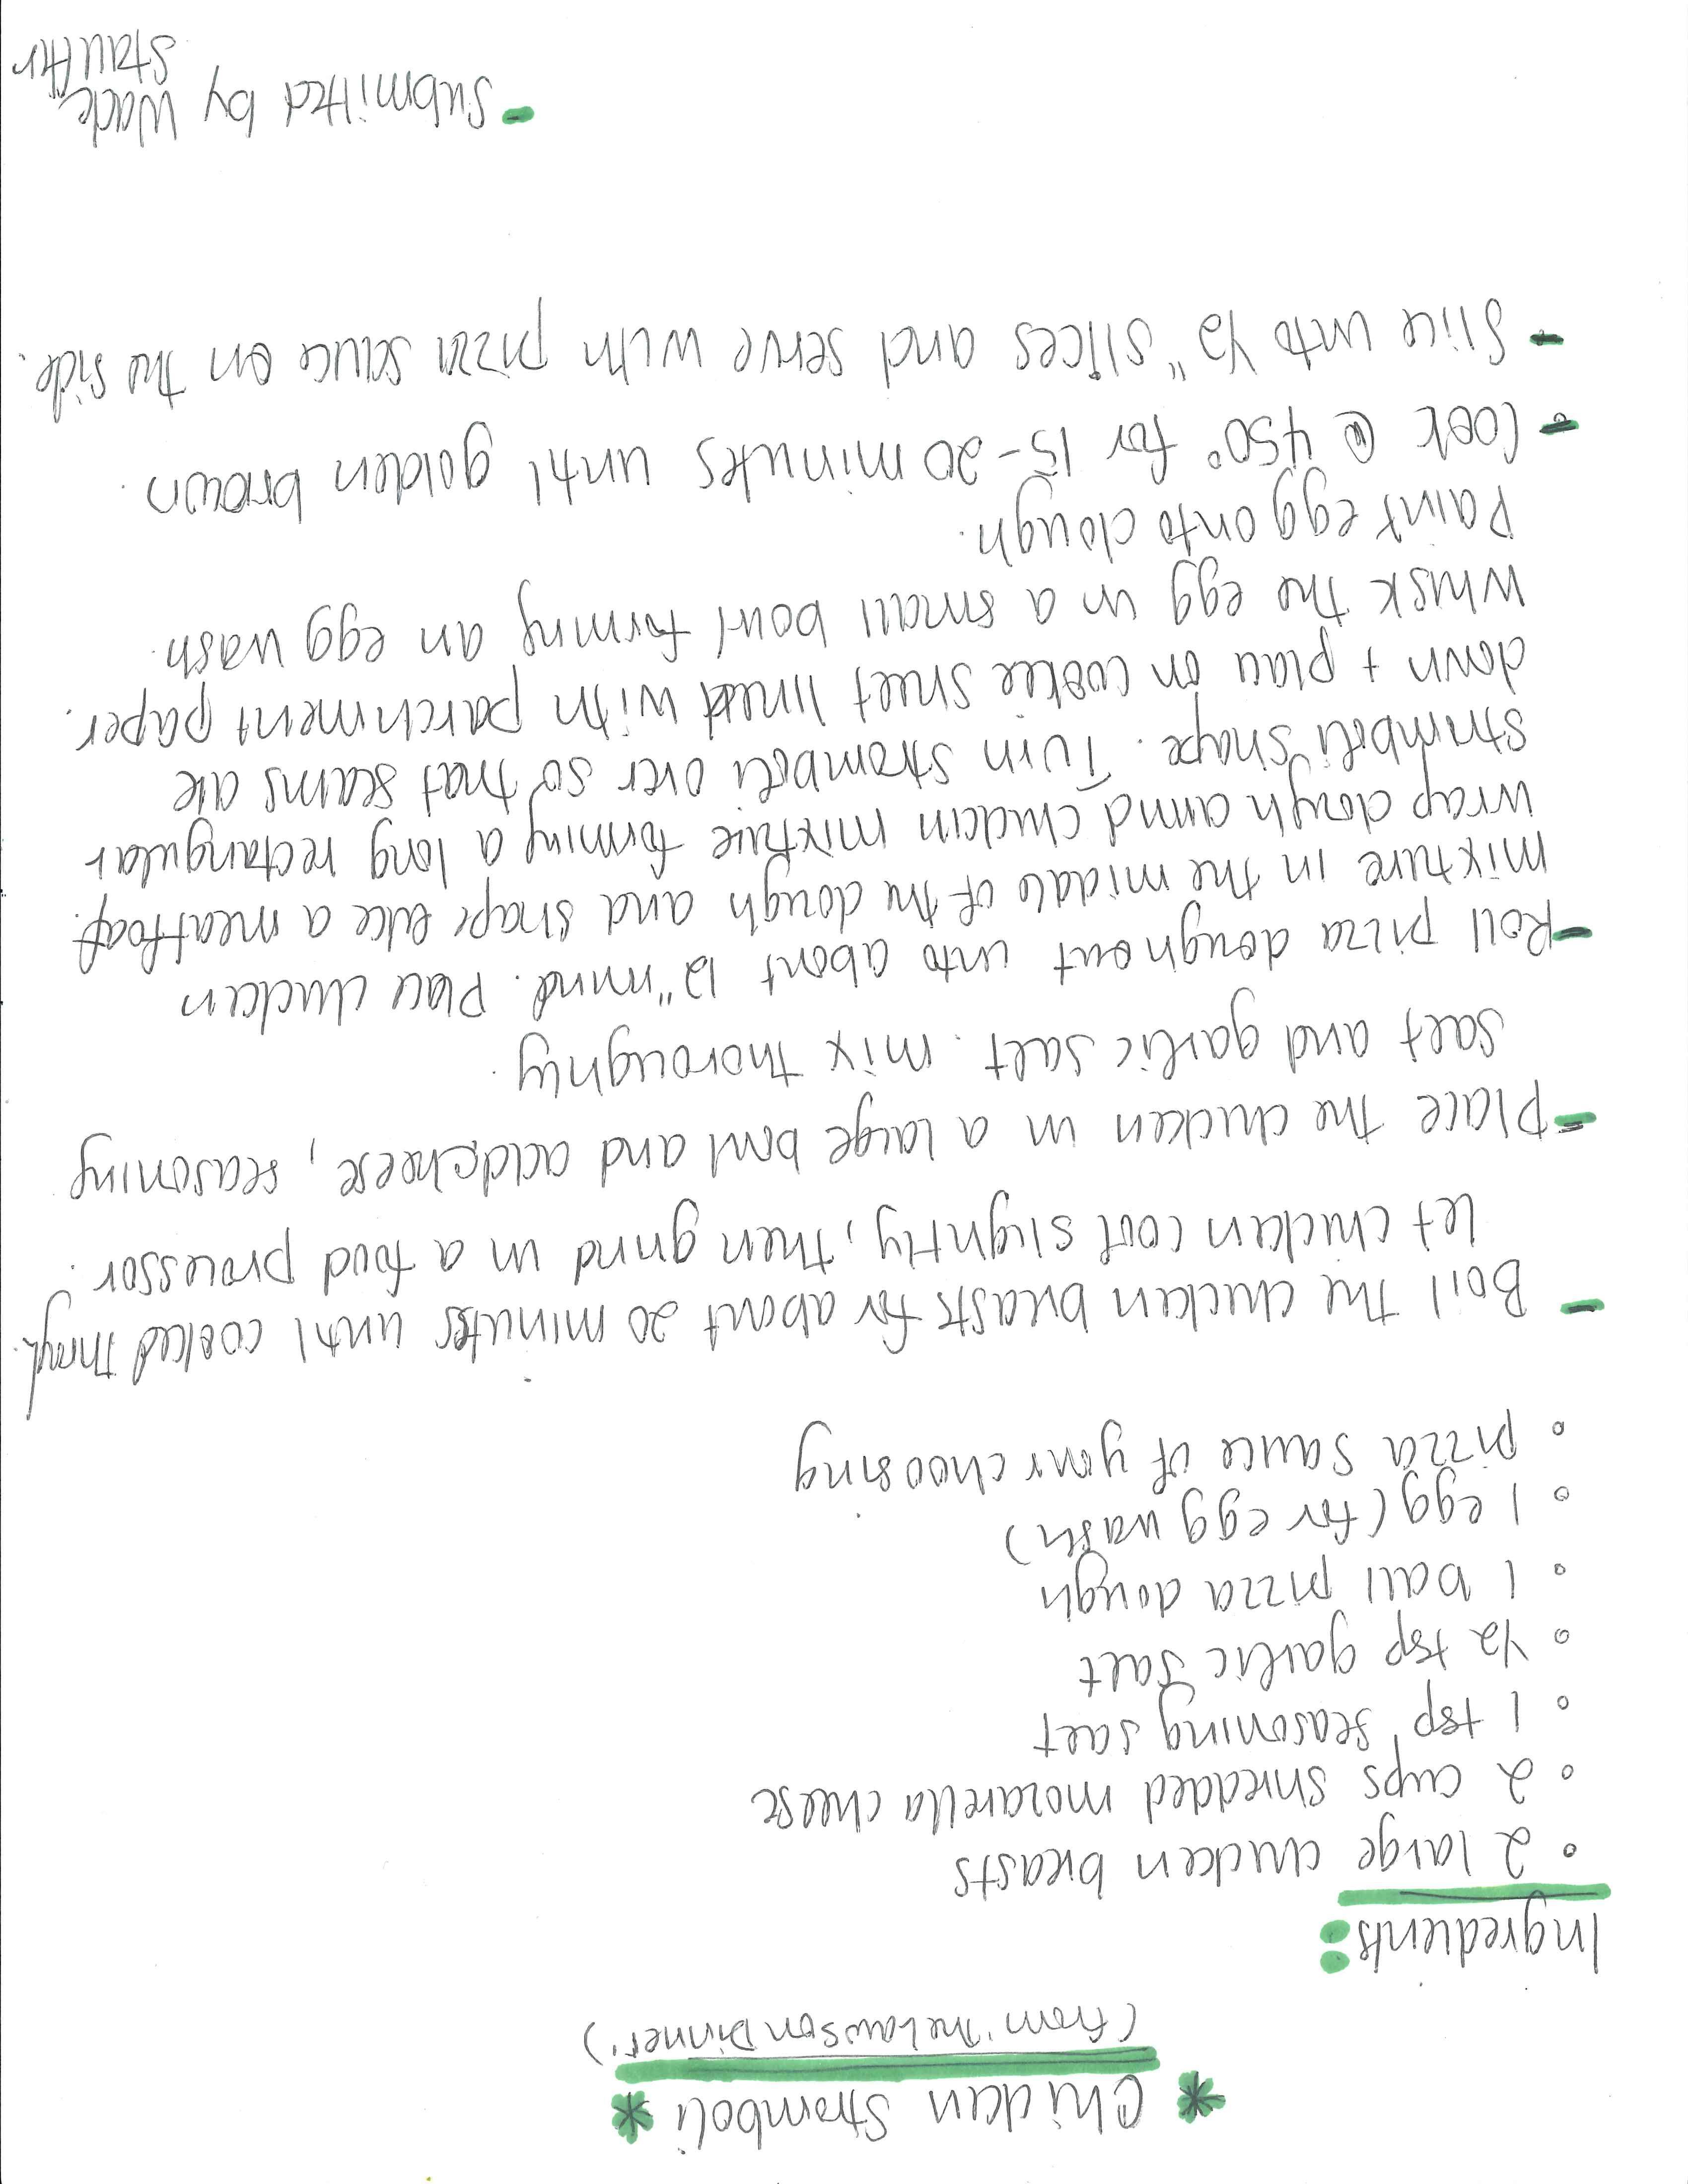 * Chicken Stromboli *
(from "The Lawson Dinner")
Ingredients:
• 2 large chicken breasts
• 2 cups shredded mozarella cheese
• 1 tsp seasoning salt
• 1/2 tsp garlic salt
• 1 ball pizza dough
• 1 egg (for egg wash)
• pizza sauce of your choosing
- Boil the chicken breasts for about 20 minutes until cooked through.
Let chicken cool slightly, then grind in a food processor.
- Place the chicken in a large bowl and add cheese, seasoning
salt and garlic salt. mix thoroughly.
- Roll pizza dough out into about 12" round. Place chicken
mixture in the middle of the dough and shape like a meatloaf.
wrap dough around chicken mixture forming a long rectangular
stromboli shape. Turn stromboli over so that seams are
down + place on cookie sheet lined with parchment paper.
Whisk the egg in a small bowl forming an egg wash.
Paint egg onto dough.
- Cook @ 450° for 15-20 minutes until golden brown.
- Slice into 1/2" slices and serve with pizza sauce on the side.
- Submitted by Wade
Stauffer